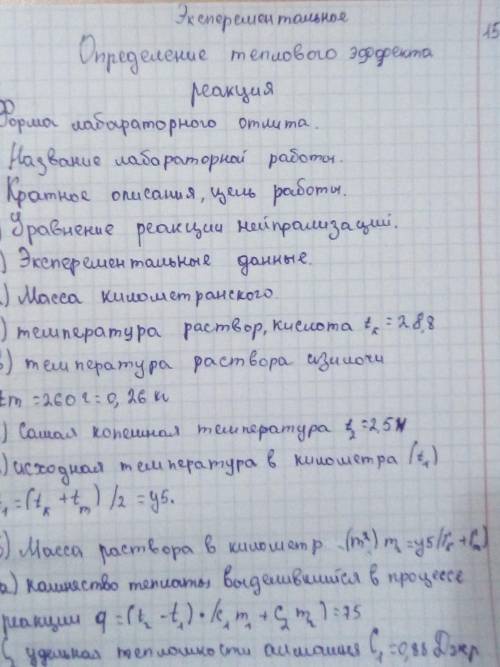 Эксперементальное
15
Определение теплового эффекта
реакция
Форма лабараторного отлита.
Название лабараторнай работы.
Кратное описания, цель работы.
) Уравнение реакции нейпрализаций.
) Эксперементальные данные.
) Масса километранского
) температура раствор, кислота tк = 28,8
в) температура раствора изилочи
tm = 260г = 0,26 кг
) Самая копешная температура t2 = 25
) исходная температура в километра (t1)
t1 = (tк + tm) / 2 = у5.
б) Масса раствора в километр
а) камнество теплаты выделившийся в процессе
реакции q = (t2 - t1) · (c1 m1 + C2 m2) = 75
удильная теплошкости алмашия C1 = 0,88 Дж